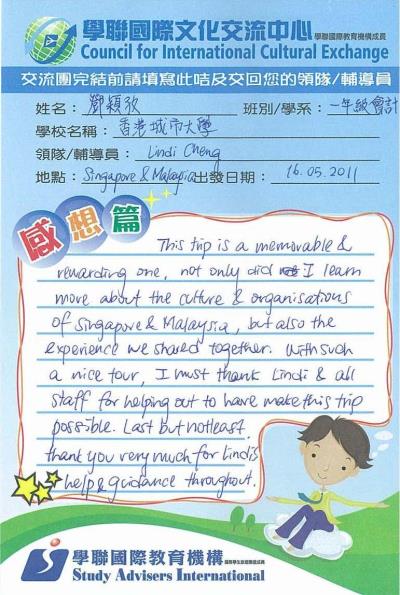 學聯國際文化交流中心 學聯國際教育機構成員
Council for International Cultural Exchange
交流團完結前請填寫此咭及交回您的領隊/輔導員
姓名：鄧穎孜 班別/學系：一年級會計
學校名稱：香港城市大學
領隊/輔導員：Lindi Cheng
地點：Singapore & Malaysia 出發日期：16.05.2011
感想篇
This trip is a memorable &
rewarding one, not only did I learn
more about the culture & organisations
of Singapore & Malaysia, but also the
experience we shared together. With such
a nice tour, I must thank Lindi & all
staff for helping out to have make this trip
possible. Last but not least,
thank you very much for Lindi's
help & guidance throughout.
學聯國際教育機構
Study Advisers International